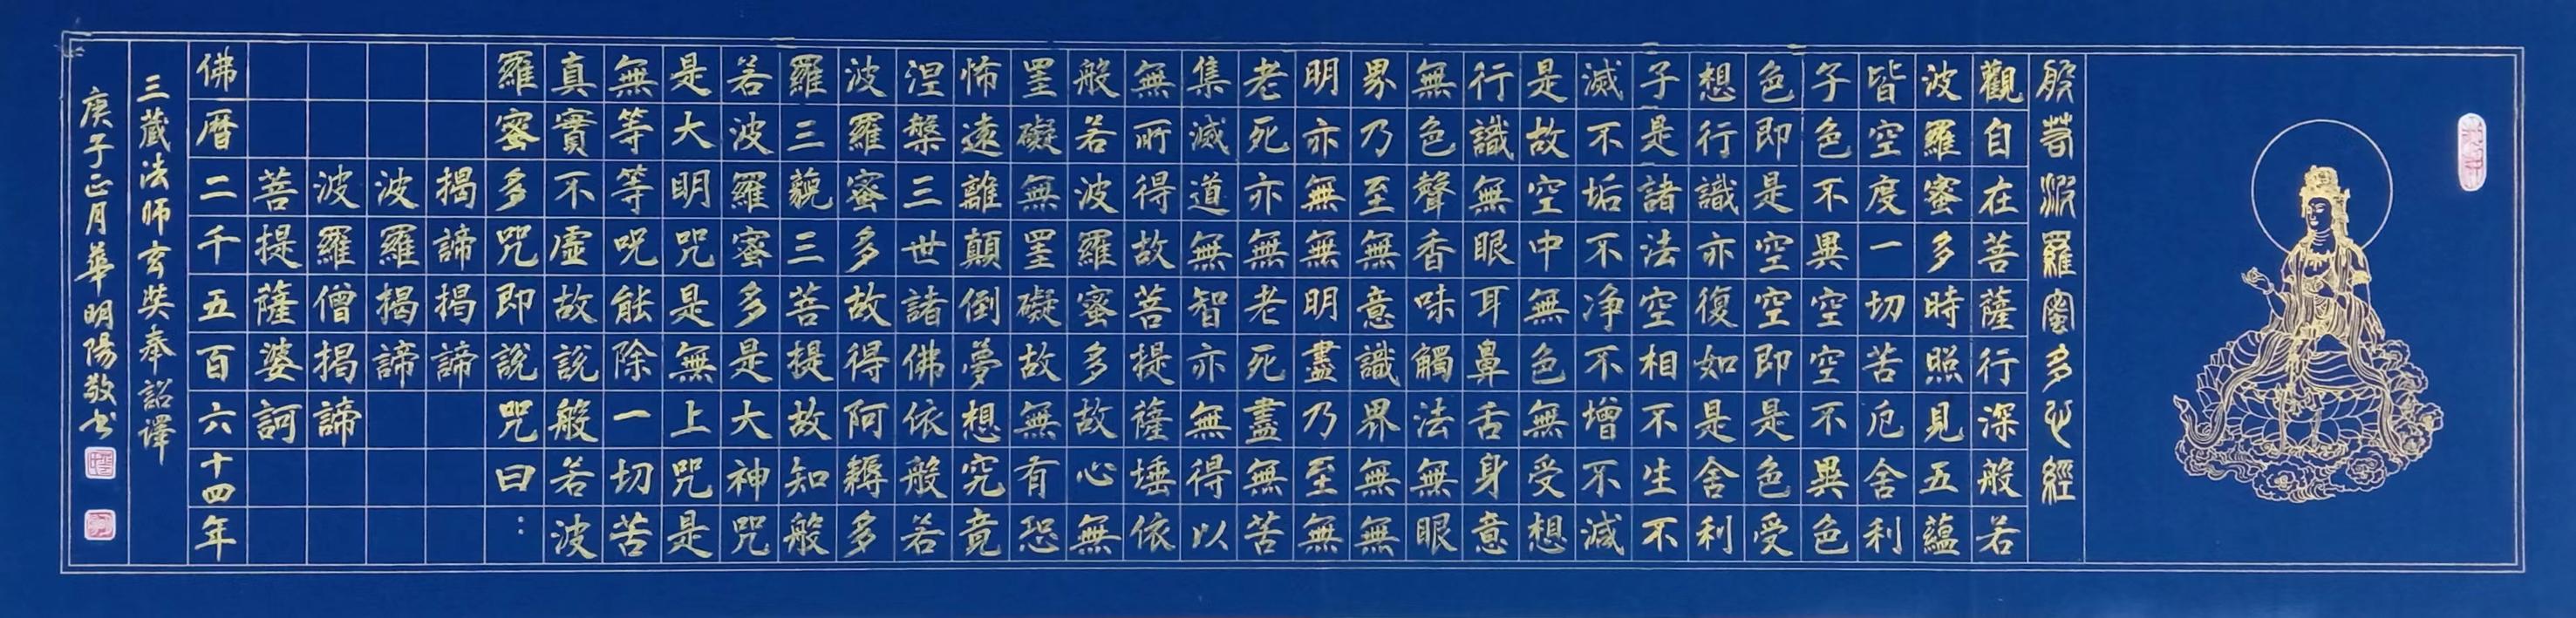 般若波羅蜜多心經
觀自在菩薩行深般若
波羅蜜多時照見五蘊
皆空度一切苦厄舍利
子色不異空空不異色
色即是空空即是色受
想行識亦復如是舍利
子是諸法空相不生不
滅不垢不净不增不減
是故空中無色無受想
行識無眼耳鼻舌身意
無色聲香味觸法無眼
界乃至無意識界無無
明亦無無明盡乃至無
老死亦無老死盡無苦
集滅道無智亦無得以
無所得故菩提薩埵依
般若波羅蜜多故心無
罣礙無罣礙故無有恐
怖遠離顛倒夢想究竟
涅槃三世諸佛依般若
波羅蜜多故得阿耨多
羅三藐三菩提故知般
若波羅蜜多是大神咒
是大明咒是無上咒是
無等等呪能除一切苦
真實不虛故說般若波
羅蜜多咒即說咒曰：
揭諦揭諦
波羅揭諦
波羅僧揭諦
菩提薩婆訶
佛曆二千五百六十四年
三藏法師玄奘奉詔譯
庚子正月華明陽敬书